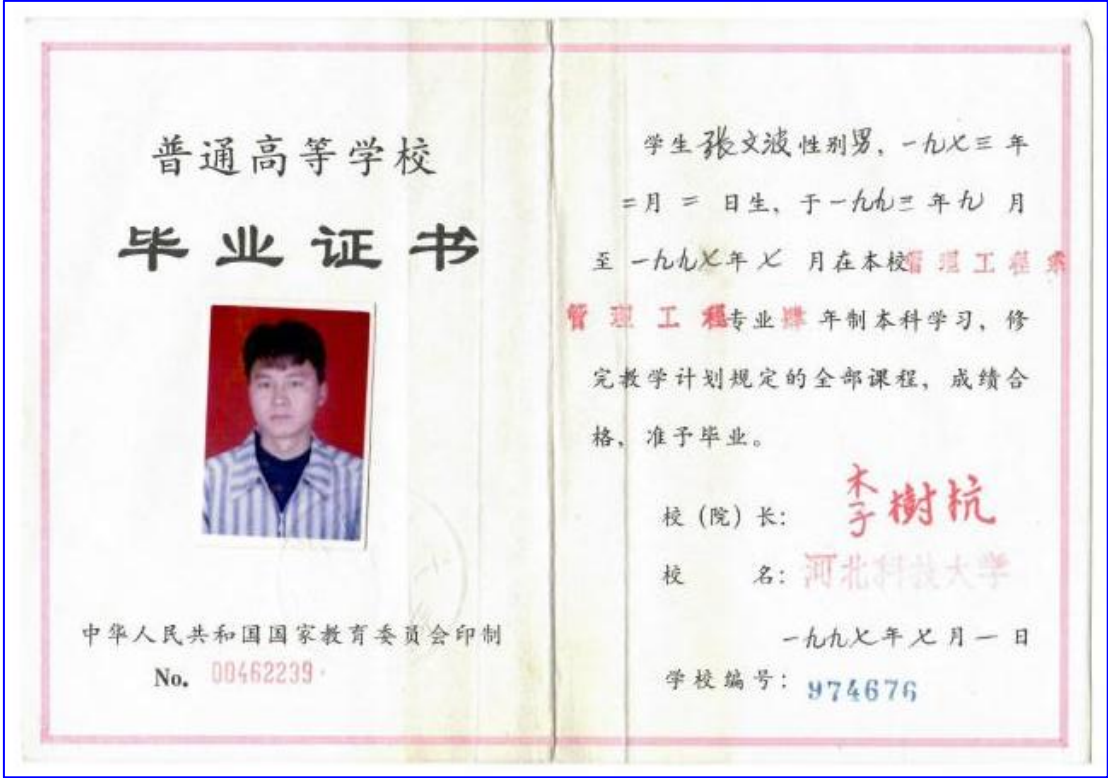 普通高等学校
毕业证书
中华人民共和国国家教育委员会印制
No. 00462239
学生张文波性别男、一九七三年
二月二日生、于一九九三年九月
至一九九七年七月在本校管理工程系
管理工程专业肆年制本科学习、修
完教学计划规定的全部课程，成绩合
格，准予毕业。
校（院）长：李树杭
校名：河北科技大学
一九九七年七月一日
学校编号：974676